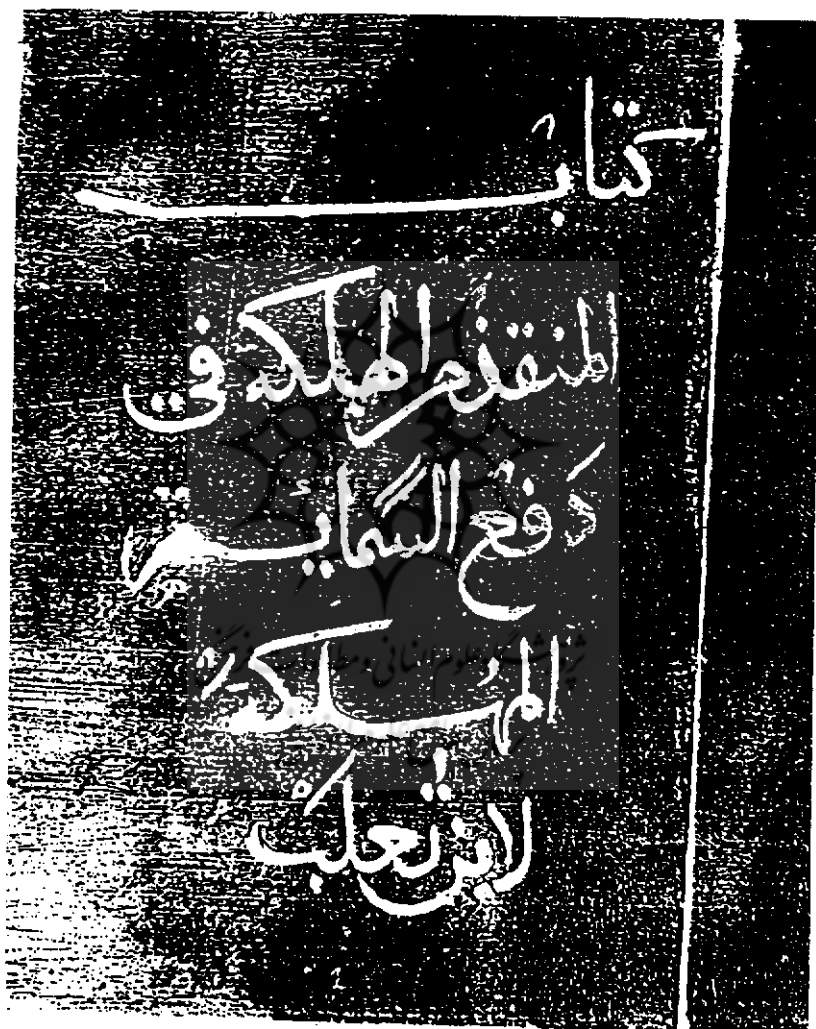 كتاب
المنقذ من الهلكه في
دفع السمايم
المهلكة
لابن ثعلب
پژوهشگاه علوم انسانی و مطالعات فرهنگی